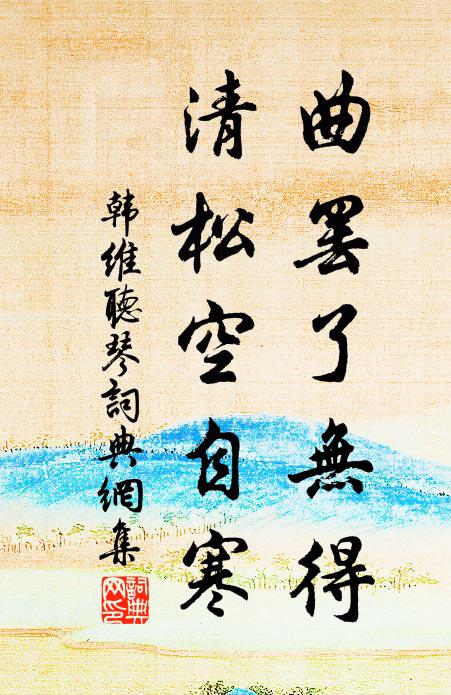 曲罢了無得
清松空自寒
韩维聽琴詞典網集
詞典网印